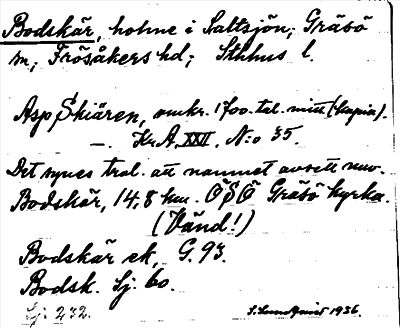 Bodskär, holme i Saltsjön, Gräsö
sn, Frösåkers hd; Sthlms l.
Asp Skiären, omkr. 1700-tal. mitt (kopia).
—. Kr A, XXII, N:o 35.
Det synes trol. att namnet avsett nuv.
Bodskär, 14,8 km. ÖSÖ Gräsö kyrka.
(Vänd!)
Bodskär ek, G. 93.
Bodsk. Sj. 60.
Sj. 232.
S. Lundquist 1936.